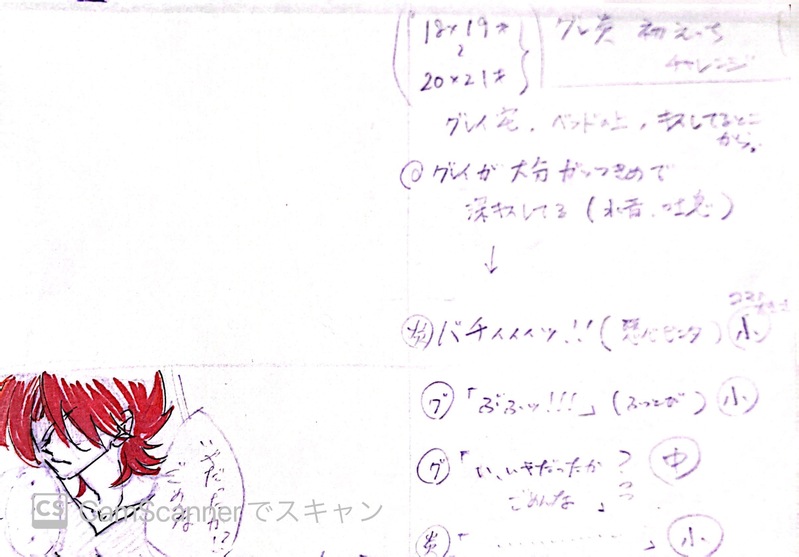 18×19才
20×21才
グレ炎 初えっち
チャレンジ
グレイ宅、ベッドの上、キスしてるとこ
から。
グレイが大分がっつきめで
深キスしてる(水音、吐息)
↓
炎 バチィィィッ!!( ビンタ) 小
グ「ぶふッ!!!」(ふっとぶ) 小
グ「い、いやだったか??
ごめんな」 中
炎「…………」 小
いやだったか!?
ごめんな
CS CamScannerでスキャン